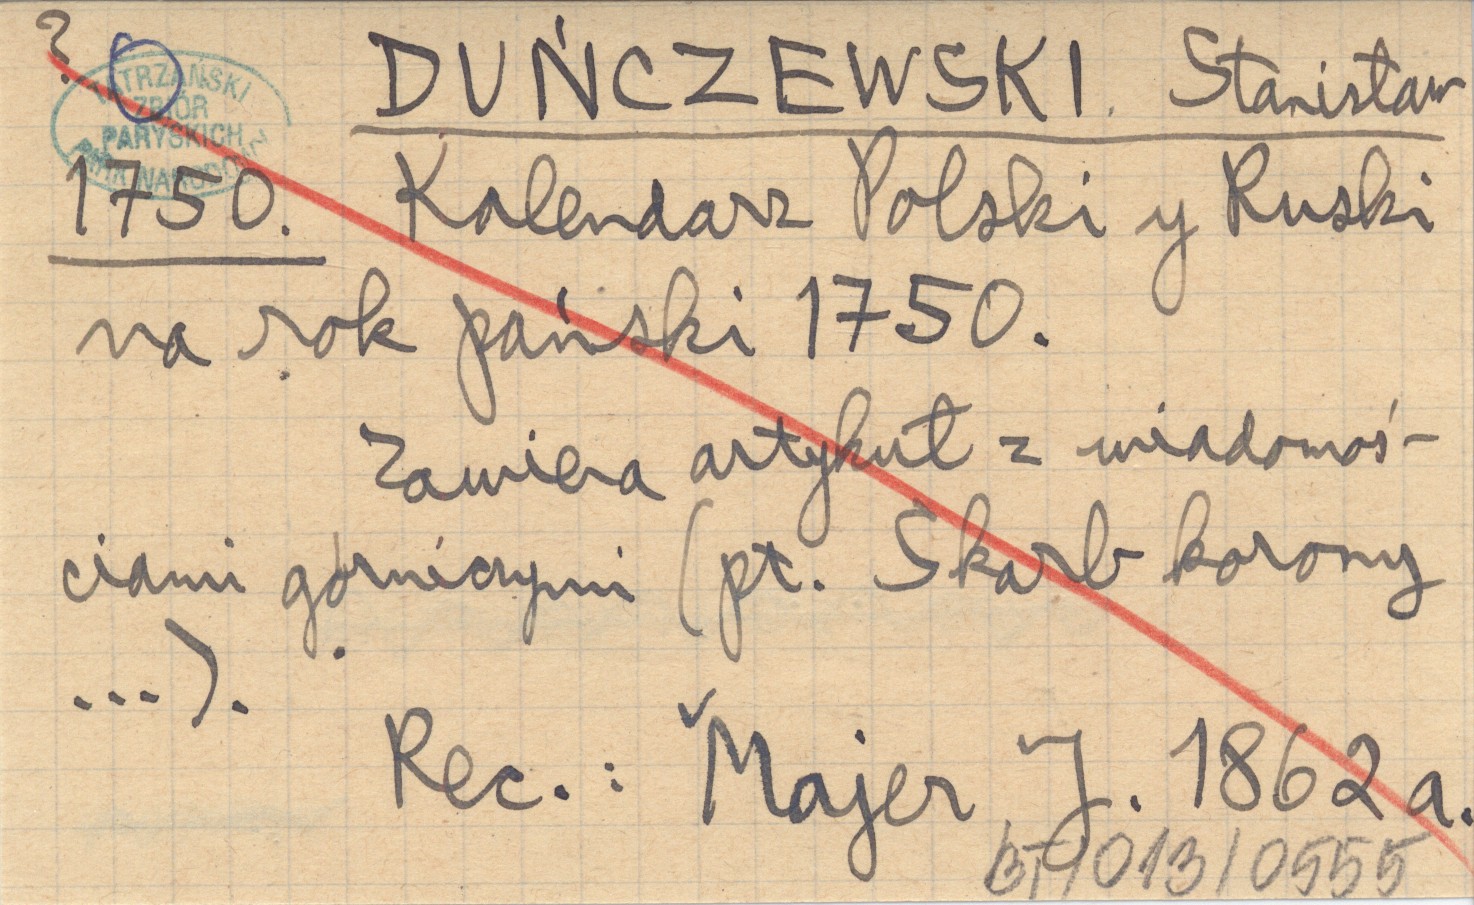 ?
TATRZAŃSKI
ZBIÓR
PARYSKICH
PARK NARODOWY
DUŃCZEWSKI. Stanisław
1750. Kalendarz Polski y Ruski
na rok pański 1750.
Zawiera artykuł z wiadomoś-
ciami górniczymi (pt. Skarb korony
...).
Rec.: Majer J. 1862a.
BT/013/0555